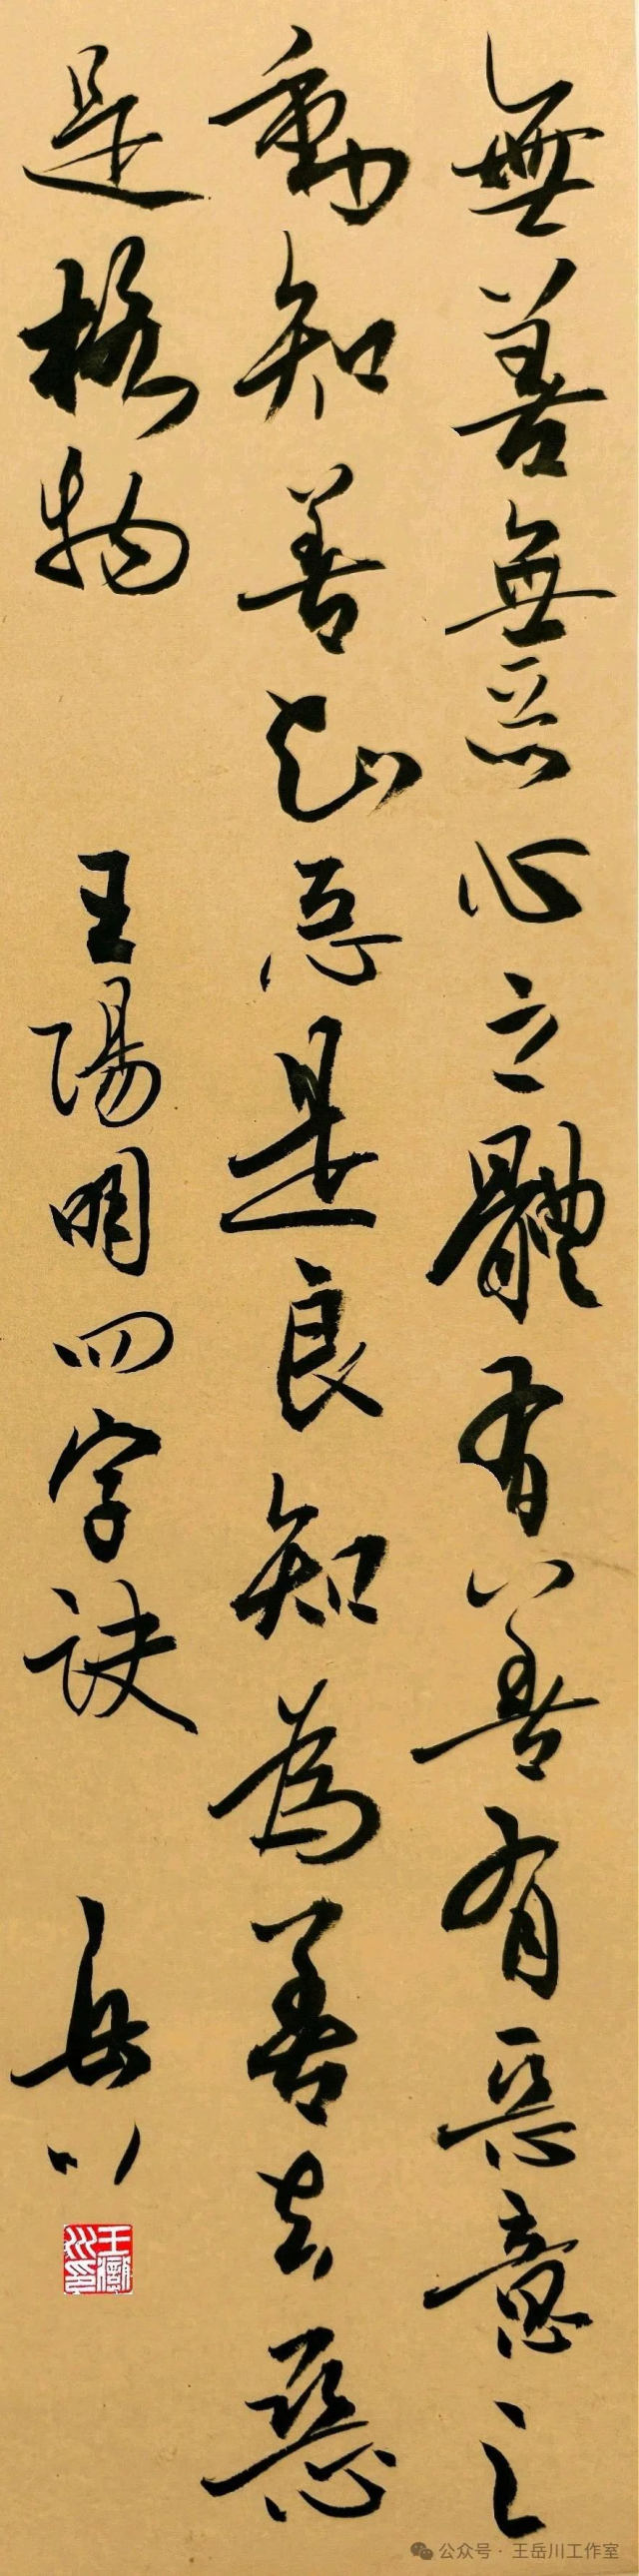 無善無惡心之體有善有惡意之
動知善知惡是良知為善去惡
是格物 王陽明四字訣 岳川
王嶽川印
公众号 · 王岳川工作室